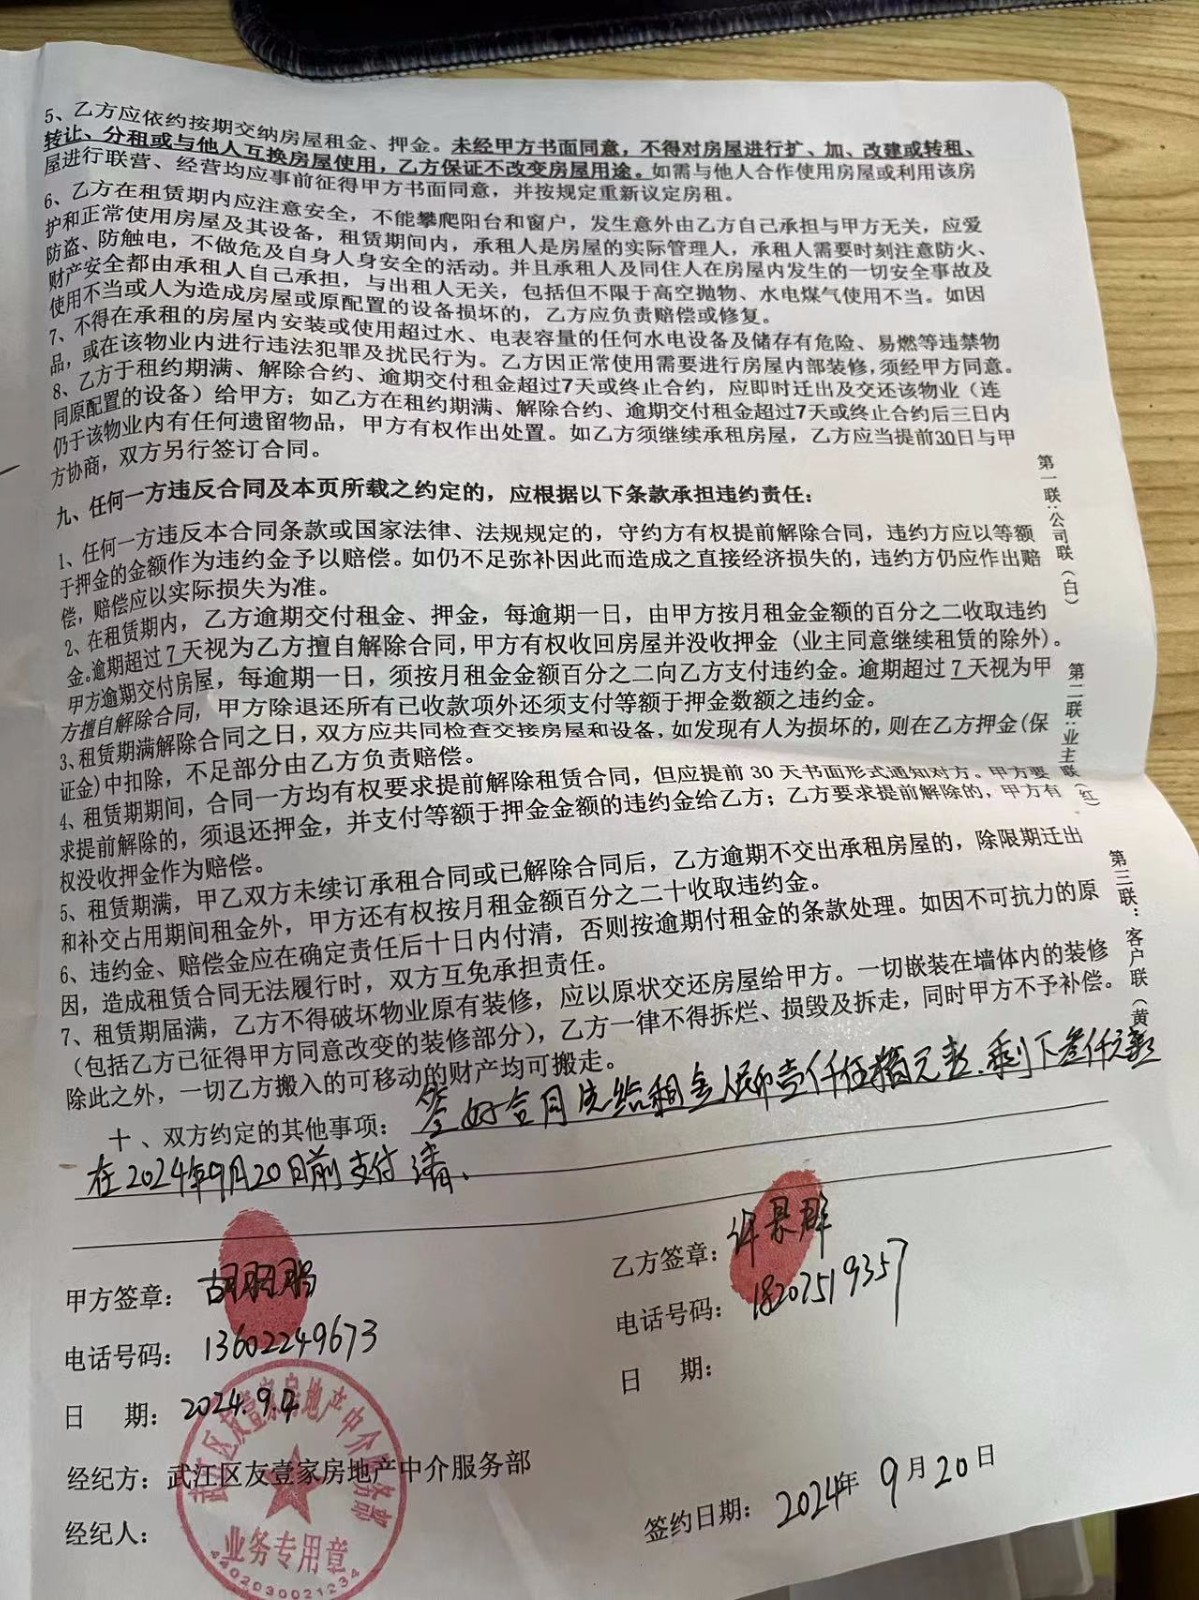 5、乙方应依约按期交纳房屋租金、押金。未经甲方书面同意，不得对房屋进行扩、加、改建或转租、
转让、分租或与他人互换房屋使用，乙方保证不改变房屋用途。如需与他人合作使用房屋或利用该房
屋进行联营、经营均应事前征得甲方书面同意，并按规定重新议定房租。
6、乙方在租赁期内应注意安全，不能攀爬阳台和窗户，发生意外由乙方自己承担与甲方无关，应爱
护和正常使用房屋及其设备，租赁期间内，承租人是房屋的实际管理人，承租人需要时刻注意防火、
防盗、防触电，不做危及自身人身安全的活动。并且承租人及同住人在房屋内发生的一切安全事故及
财产安全都由承租人自己承担，与出租人无关，包括但不限于高空抛物、水电煤气使用不当。如因
使用不当或人为造成房屋或原配置的设备损坏的，乙方应负责赔偿或修复。
7、不得在承租的房屋内安装或使用超过水、电表容量的任何水电设备及储存有危险、易燃等违禁物
品，或在该物业内进行违法犯罪及扰民行为。乙方因正常使用需要进行房屋内部装修，须经甲方同意。
8、乙方于租约期满、解除合约、逾期交付租金超过7天或终止合约，应即时迁出及交还该物业（连
同原配置的设备）给甲方；如乙方在租约期满、解除合约、逾期交付租金超过7天或终止合约后三日内
仍于该物业内有任何遗留物品，甲方有权作出处置。如乙方须继续承租房屋，乙方应当提前30日与甲
方协商，双方另行签订合同。
九、任何一方违反合同及本页所载之约定的，应根据以下条款承担违约责任：
1、任何一方违反本合同条款或国家法律、法规规定的，守约方有权提前解除合同，违约方应以等额
于押金的金额作为违约金予以赔偿。如仍不足弥补因此而造成之直接经济损失的，违约方仍应作出赔
偿，赔偿应以实际损失为准。
2、在租赁期内，乙方逾期交付租金、押金，每逾期一日，由甲方按月租金金额的百分之二收取违约
金。逾期超过7天视为乙方擅自解除合同，甲方有权收回房屋并没收押金（业主同意继续租赁的除外）。
甲方逾期交付房屋，每逾期一日，须按月租金金额百分之二向乙方支付违约金。逾期超过7天视为甲
方擅自解除合同，甲方除退还所有已收款项外还须支付等额于押金数额之违约金。
3、租赁期满解除合同之日，双方应共同检查交接房屋和设备，如发现有人为损坏的，则在乙方押金(保
证金)中扣除，不足部分由乙方负责赔偿。
4、租赁期期间，合同一方均有权要求提前解除租赁合同，但应提前30天书面形式通知对方。甲方要
求提前解除的，须退还押金，并支付等额于押金金额的违约金给乙方；乙方要求提前解除的，甲方有
权没收押金作为赔偿。
5、租赁期满，甲乙双方未续订承租合同或已解除合同后，乙方逾期不交出承租房屋的，除限期迁出
和补交占用期间租金外，甲方还有权按月租金额百分之二十收取违约金。
6、违约金、赔偿金应在确定责任后十日内付清，否则按逾期付租金的条款处理。如因不可抗力的原
因，造成租赁合同无法履行时，双方互免承担责任。
7、租赁期届满，乙方不得破坏物业原有装修，应以原状交还房屋给甲方。一切嵌装在墙体内的装修
（包括乙方已征得甲方同意改变的装修部分），乙方一律不得拆烂、损毁及拆走，同时甲方不予补偿。
除此之外，一切乙方搬入的可移动的财产均可搬走。
十、双方约定的其他事项：签好合同先给租金人民币壹仟伍佰元整、剩下叁仟元整
在2024年9月20日前支付清、
甲方签章：
电话号码：13602249673
日 期：2024.9.4
经纪方：武江区友壹家房地产中介服务部
经纪人：
乙方签章：许景群
电话号码：18207519357
日 期：
签约日期：2024年9月20日
武江区友壹家房地产中介服务部
业务专用章
4402030021234
第一联：公司联（白）
第二联：业主联（红）
第三联：客户联（黄